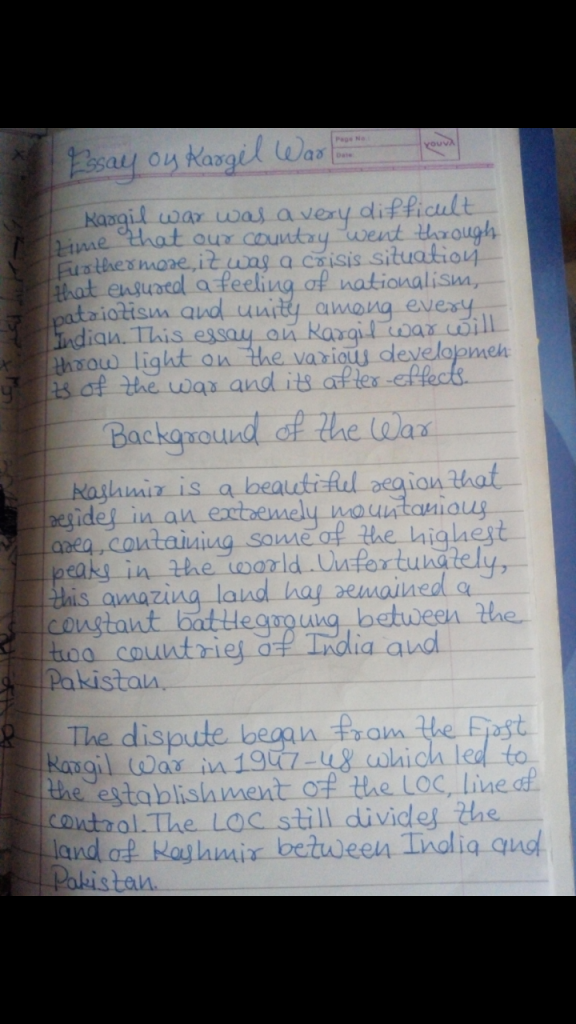 Essay on Kargil War
Page No.:
Date:
YOUVA
Kargil war was a very difficult
time that our country went through
Furthermore, it was a crisis situation
that ensured a feeling of nationalism,
patriotism and unity among every
Indian. This essay on Kargil war will
throw light on the various developmen
ts of the war and its after-effects.
Background of the War
Kashmir is a beautiful region that
resides in an extremely mountanious
area, containing some of the highest
peaks in the world. Unfortunately,
this amazing land has remained a
constant battlegroung between the
two countries of India and
Pakistan.
The dispute began from the First
Kargil War in 1947-48 which led to
the establishment of the LOC, line of
control. The LOC still divides the
land of Kashmir between India and
Pakistan.